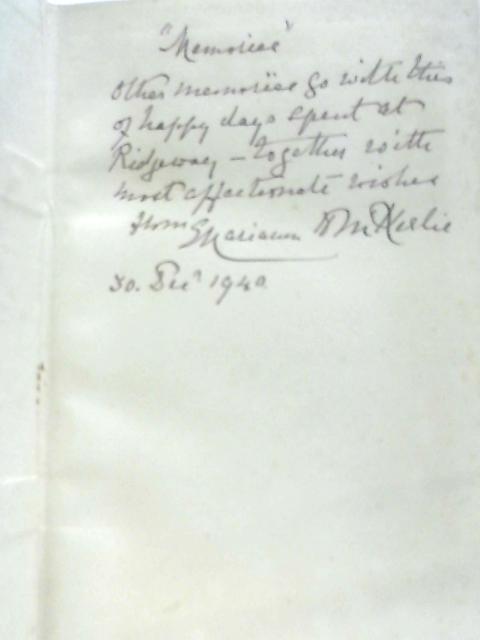 "Memories"
Other memories go with this
of happy days spent at
Ridgeway – together with
most affectionate wishes
from E Marianne H McKerlie
30. Decr 1940